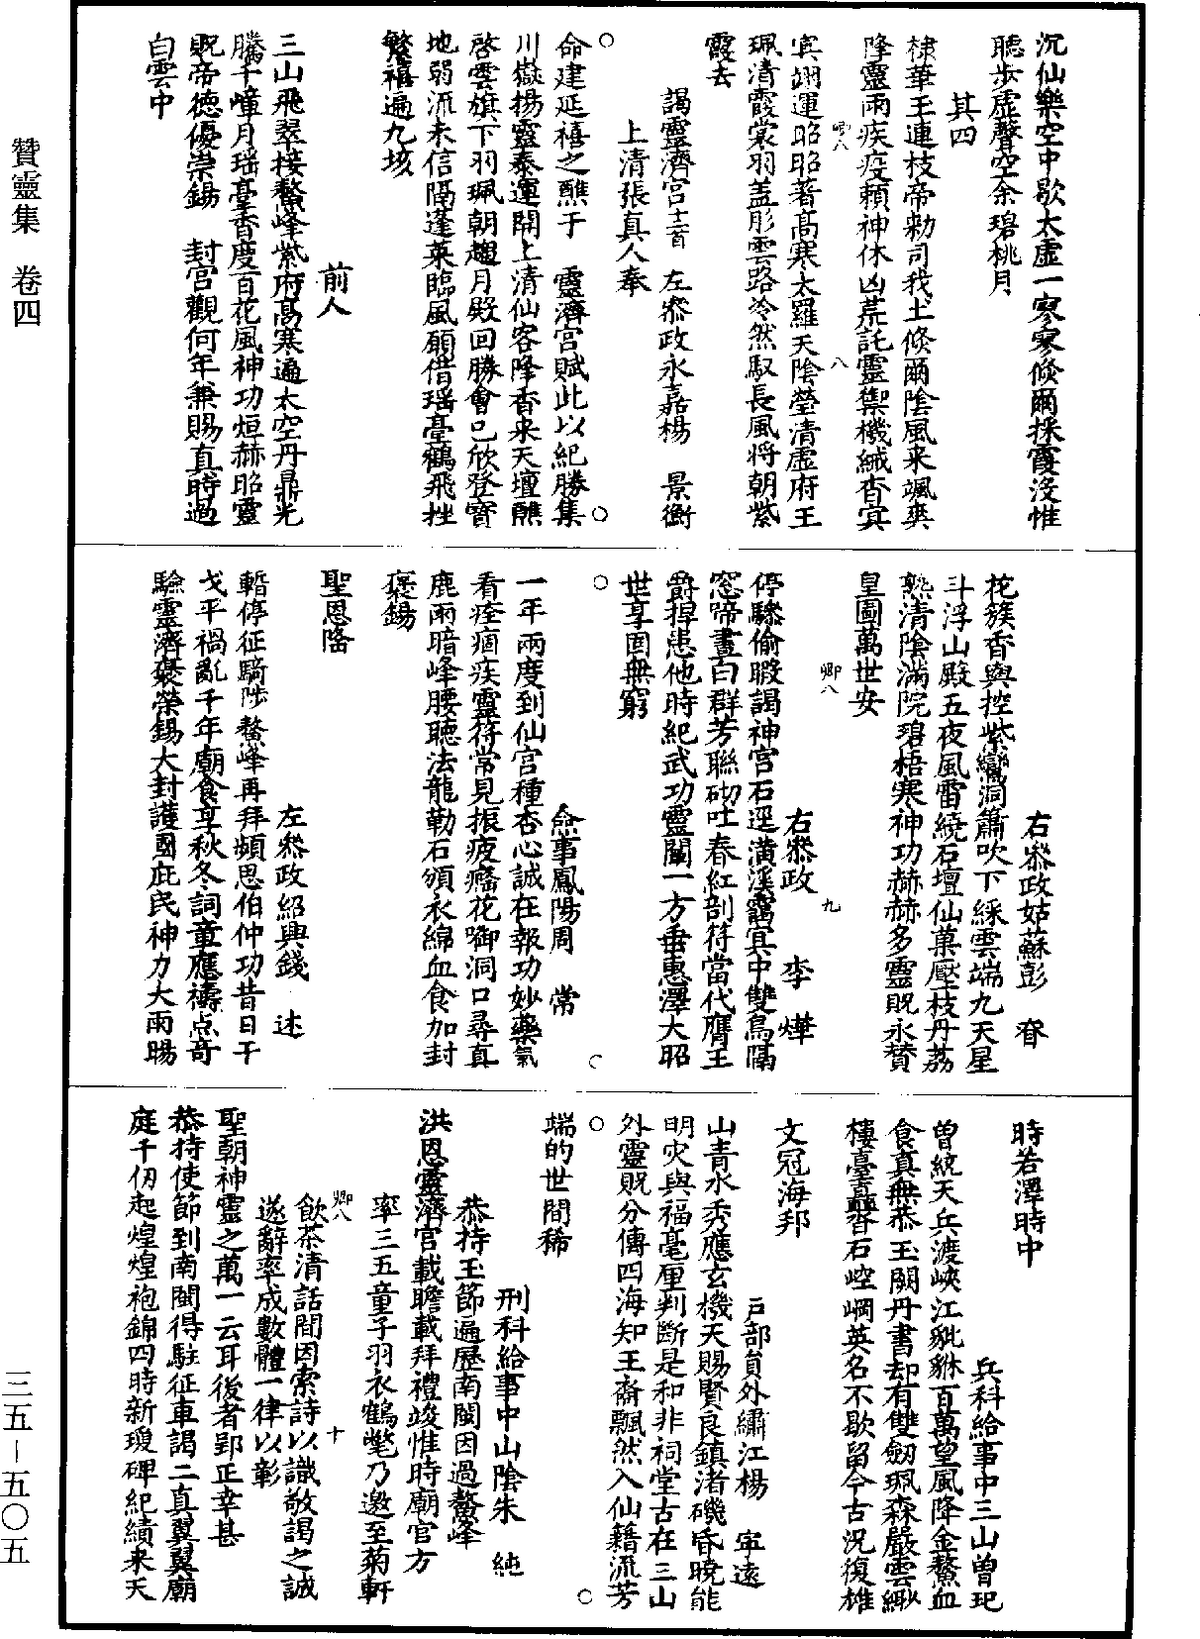 沉仙樂空中歇太虛一寥寥倏爾採霞没惟
聽步虛聲空余碧桃月
其四
棣華王連枝帝勑司我土倏爾陰風来颯爽
降靈雨疾疫賴神休凶荒託靈禦機緘杳㝠
㝠翊運昭昭著高寒太羅天陰瑩清虛府王
珮清霞裳羽盖彤雲路泠然馭長風将朝紫
霞去
謁靈濟宮十二首 左叅政永嘉楊 景衡
上清張真人奉
命建延禧之醮于 靈濟宮賦此以紀勝集
川嶽揚靈泰運開上清仙客降香来天壇醮
啓雲旗下羽珮朝趨月殿回勝會已欣登寳
地弱流未信隔蓬莱臨風願借瑶臺鶴飛挫
繁禧遍九垓
前人
三山飛翠接鰲峰紫府高寒遍太空丹鼎光
騰千嶂月瑶臺香度百花風神功烜赫昭靈
貺帝徳優崇錫 封宮觀何年兼賜真時過
白雲中
卿八
八
右叅政姑蘇彭 㫪
花簇香與控紫鸞洞簫吹下綵雲端九天星
斗浮山殿五夜風雷繞石壇仙菓壓枝丹荔
熟清陰滿院碧梧寒神功赫赫多靈貺永賛
皇圖萬世安
右叅政 李 燁
停驂偷暇謁神宮石逕潢溪靄㝠中雙鳥隔
窓啼晝白群芳聯砌吐春紅剖符當代膺王
爵捍患他時紀武功靈闡一方垂惠澤大昭
世享固無窮
僉事鳳陽周 常
一年兩度到仙宮種杏心誠在報功妙藥氣
看痊痼疾靈符常見振疲癃花啣洞口尋真
鹿雨暗峰腰聽法龍勒石頒衣綿血食加封
褒錫
聖恩隆
左叅政紹興錢 述
暫停征騎陟鰲峰再拜頻思伯仲功昔日干
戈平禍亂千年廟食享秋冬詞章應禱点竒
驗靈濟褒榮錫大封護國庇民神力大雨暘
卿八
九
時若澤時中
兵科給事中三山曾玘
曽統天兵渡峽江貔貅百萬望風降金鰲血
食真無忝玉闕丹書却有雙劒珮森嚴雲緲
樓臺矗䂖石崆峒英名不歇留今古況復雄
文冠海邦
戸部負外繡江楊 寜遠
山青水秀應玄機天賜賢良鎮渚磯昏曉能
明灾與福毫厘判斷是和非祠堂古在三山
外靈貺分傳四海知王斋飄然入仙籍流芳
端的世間稀
刑科給事中山陰朱 純
恭持玉節遍歷南閩因過鰲峰
洪恩靈濟宮載瞻載拜禮竣惟時廟官方
率三五童子羽衣鶴氅乃邀至菊軒
飲茶清話間因索詩以識敬謁之誠
遂辭率成數體一律以彰
聖朝神靈之萬一云耳後者郢正幸甚
恭持使節到南閩得駐征車謁二真翼翼廟
庭千仭起煌煌袍錦四時新瓊碑紀績来天
卿八
十
贊靈集 卷四
三五－五〇五